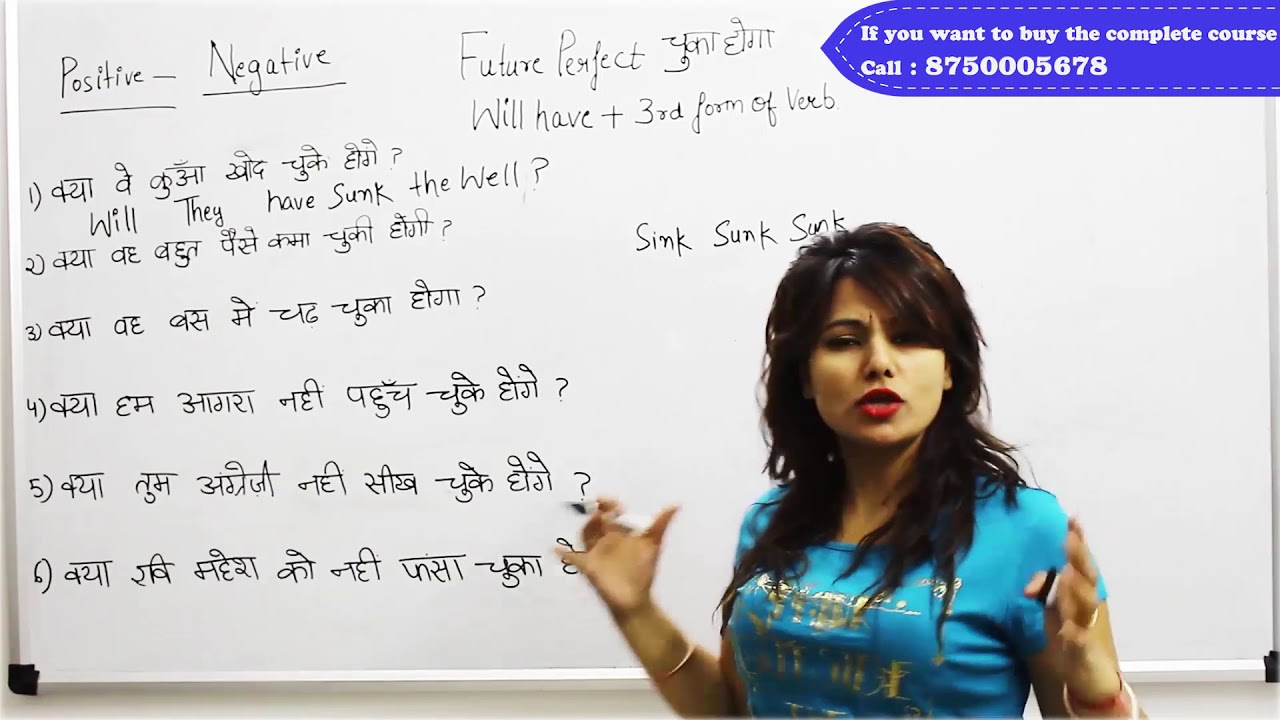 If you want to buy the complete course
Call : 8750005678
Positive – Negative
Future Perfect चुका होगा
Will have + 3rd form of Verb.
1) क्या वे कुआँ खोद चुके होंगे ?
Will They have Sunk the Well ?
Sink Sunk Sunk
2) क्या वह बहुत पैसे कमा चुकी होगी ?
3) क्या वह बस में चढ़ चुका होगा ?
4) क्या हम आगरा नहीं पहुँच चुके होंगे ?
5) क्या तुम अंग्रेज़ी नहीं सीख चुके होंगे ?
6) क्या रवि महेश को नहीं फंसा चुका